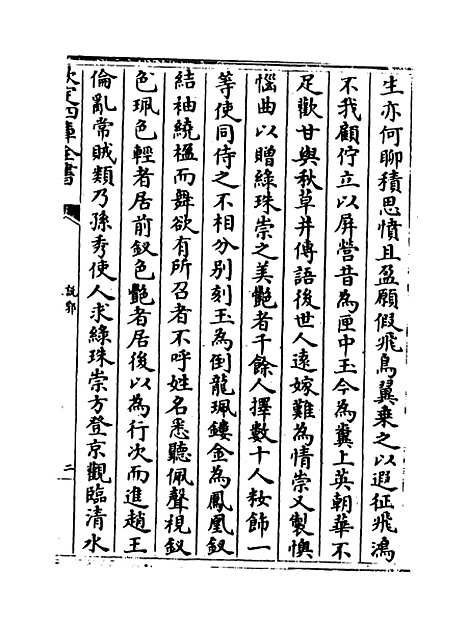 生亦何聊積思憤且盈願假飛鳥翼乗之以遐征飛鴻
不我顧佇立以屏營昔為匣中玉今為糞上英朝華不
足歡甘與秋草并傳語後世人遠嫁難為情崇又製懊
惱曲以贈緑珠崇之美艷者千餘人擇數十人粧飾一
等使同侍之不相分别刻玉為倒龍珮鏤金為鳳凰釵
結袖繞楹而舞欲有所召者不呼姓名悉聽佩聲視釵
色珮色輕者居前釵色艷者居後以為行次而進趙王
倫亂常賊類乃孫秀使人求緑珠崇方登京觀臨清水
欽定四庫全書
說郛
二